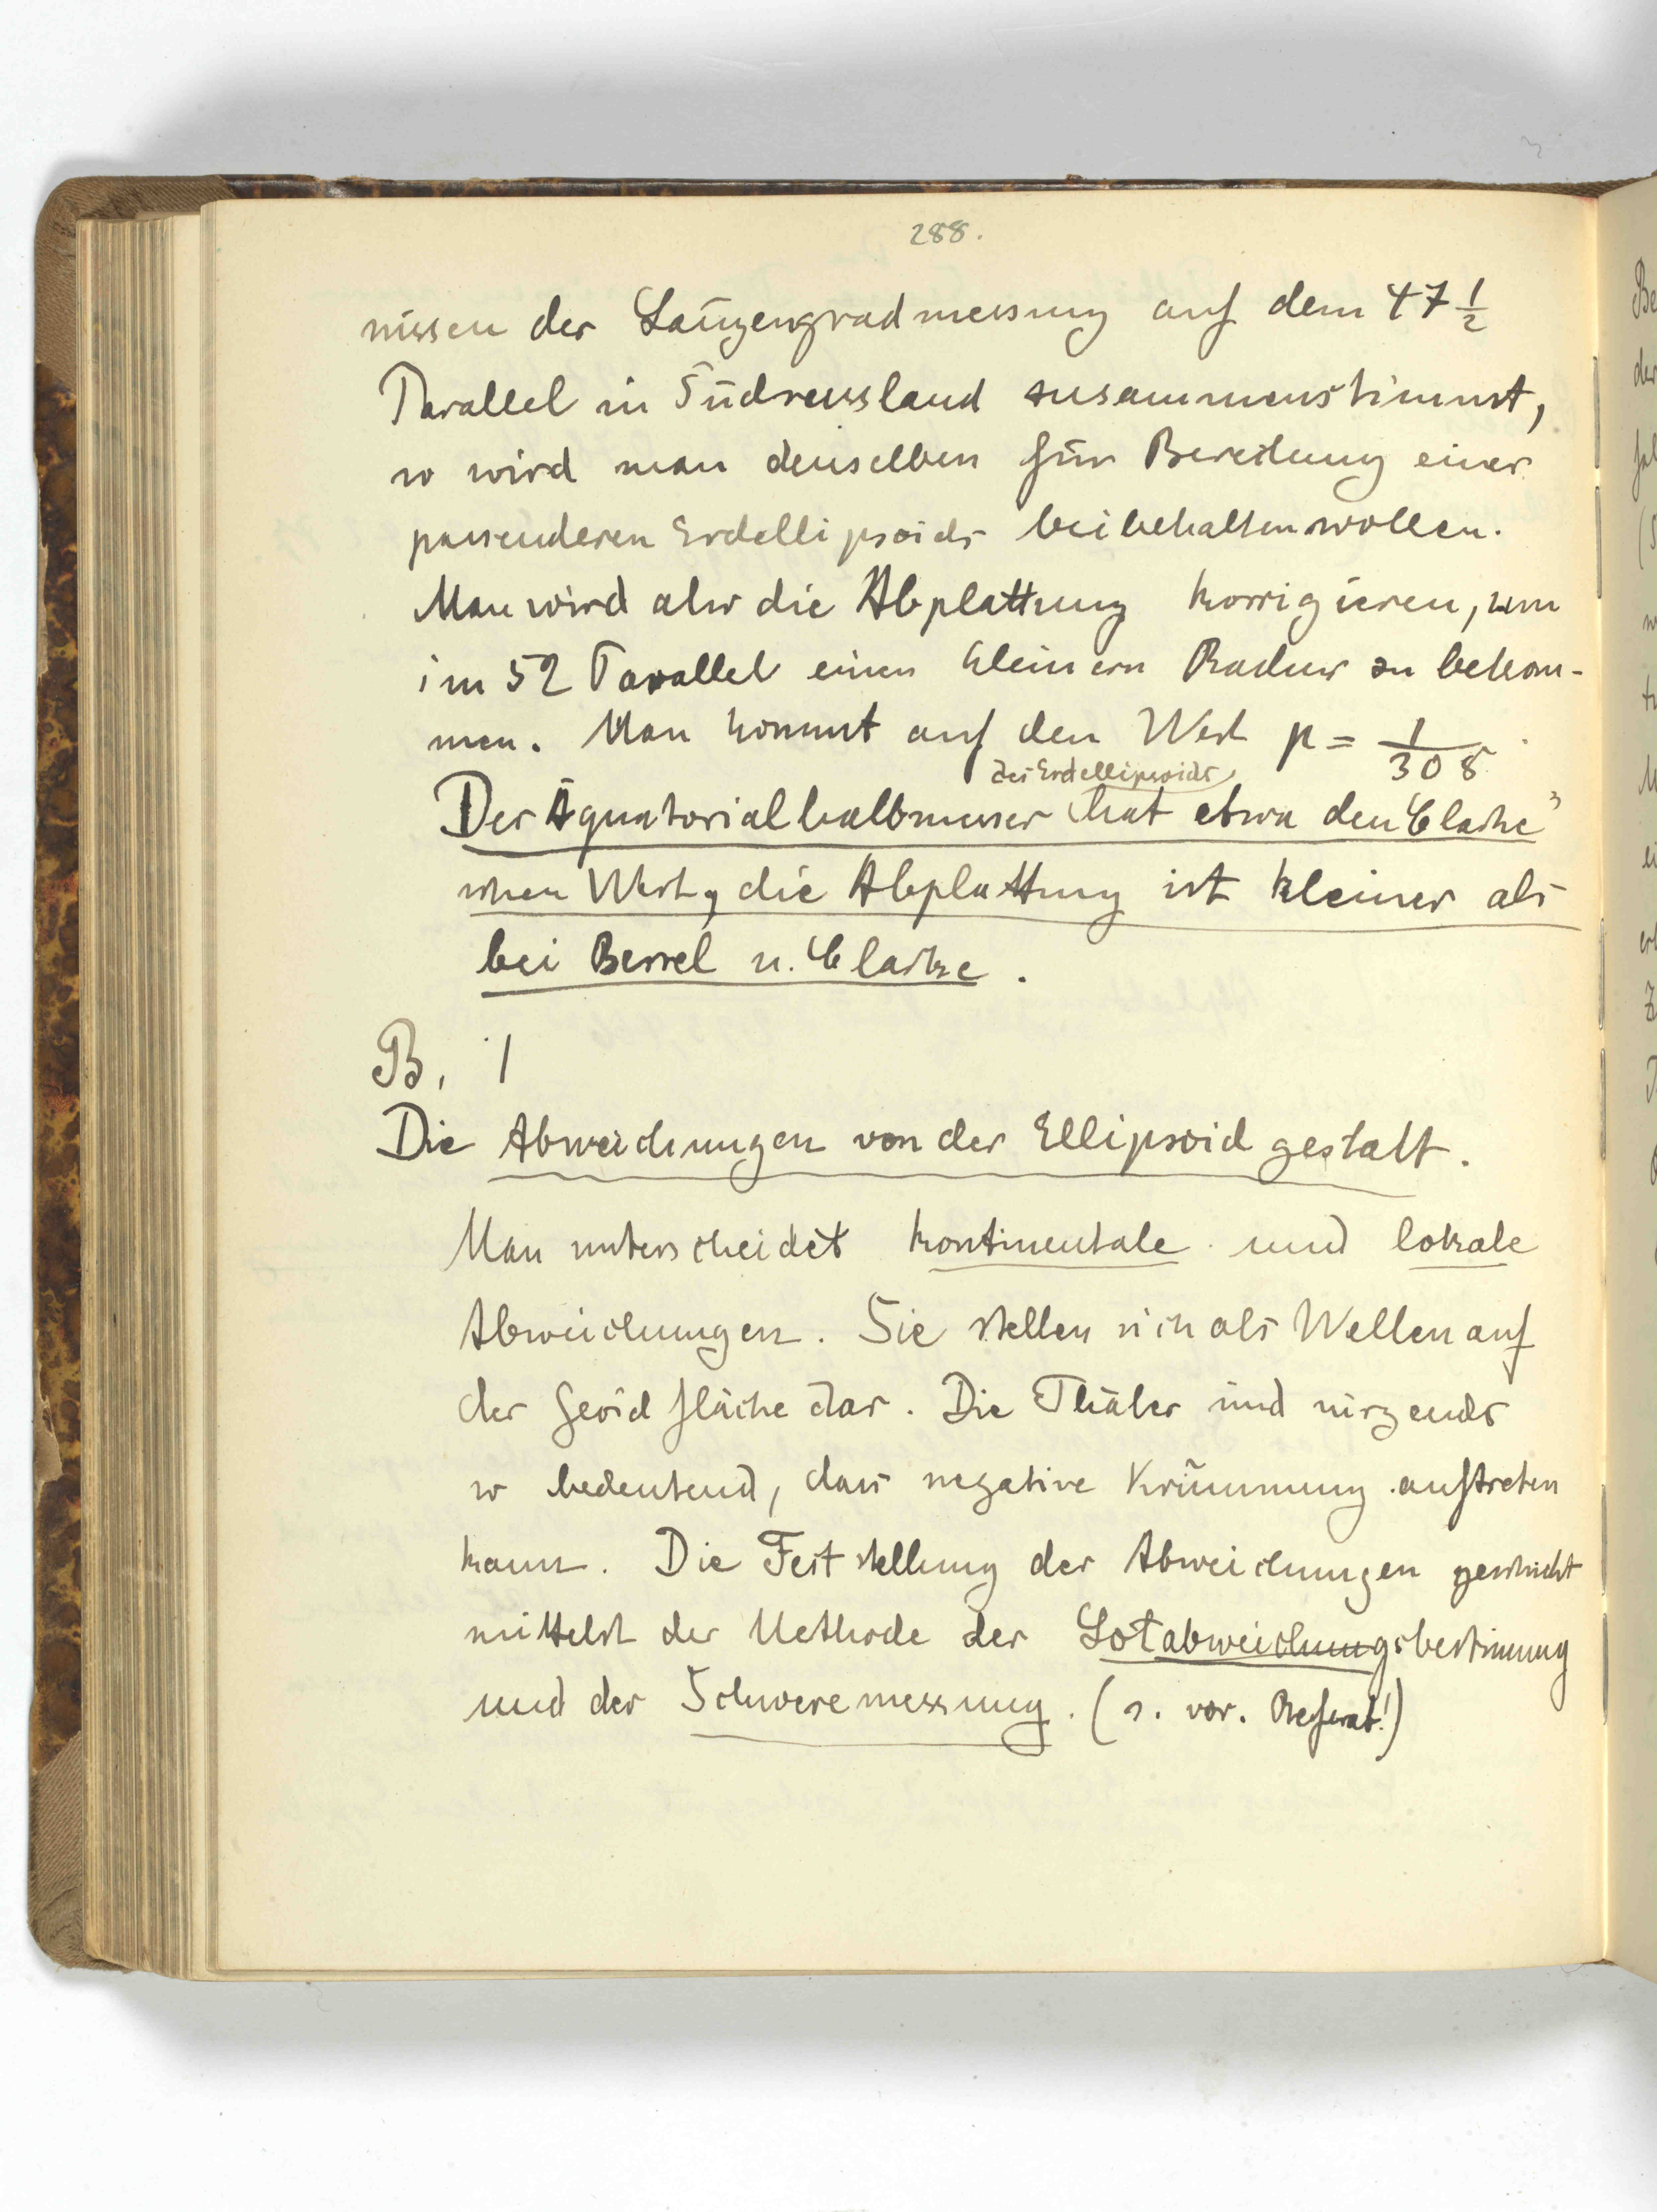 288.
nissen der Längengradmessung auf dem 47 1/2
Parallel in Südrussland zusammenstimmt,
so wird man denselben für Bereitung einer
passenderen Erdellipsoids beibehalten wollen.
Man wird also die Abplattung korrigieren, um
im 52 Parallel einen kleinern Radius zu bekom-
men. Man kommt auf den Wert p = 1/308
des Erdellipsoids
Der Äquatorialhalbmesser hat etwa den Clarke"
schen Wert, die Abplattung ist kleiner als
bei Bessel u. Clarke.
B. 1
Die Abweichungen von der Ellipsoidgestalt.
Man unterscheidet kontinentale und lokale
Abweichungen. Sie stellen sich als Wellen auf
der Geoidfläche dar. Die Thäler sind nirgends
so bedeutend, dass negative Krümmung auftreten
kann. Die Feststellung der Abweichungen geschieht
mittelst der Methode der Lotabweichungsbestimmung
und der Schweremessung. (s. vor. Referat!)